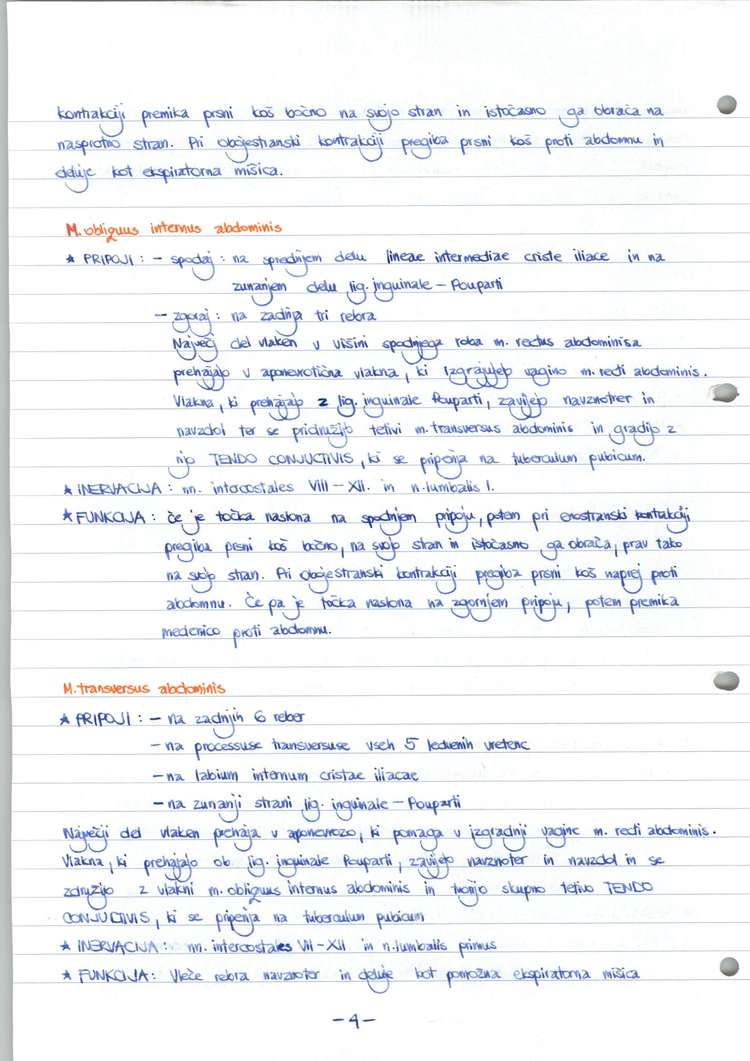 kontrakciji premika prsni koš bočno na svojo stran in istočasno ga obrača na
nasprotno stran. Pri obojestranski kontrakciji pregiba prsni koš proti abdomnu in
deluje kot ekspiratorna mišica.
M. obliquus internus abdominis
* PRIPOJI : - spodaj : na sprednjem delu lineae intermediae criste iliace in na
zunanjem delu lig. inguinale - Pouparti
- zgoraj : na zadnja tri rebra
Največj del vlaken v višini spodnjega roba m. rectus abdominisa
prehajajo v aponevrotična vlakna, ki izgrajujejo vagino m. recti abdominis.
Vlakna, ki prehajajo z lig. inguinale Pouparti, zavijejo navznoter in
navzdol ter se pridružijo tetivi m. transversus abdominis in gradijo z
njo TENDO CONJUCTIVIS, ki se pripenja na tuberculum pubicum.
* INERVACIJA : nn. intercostales VIII - XII. in n. lumbalis I.
* FUNKCIJA : če je točka naslona na spodnjem pripoju, potem pri enostranski kontrakciji
pregiba prsni koš bočno, na svojo stran in istočasno ga obrača, prav tako
na svojo stran. Pri obojestranski kontrakciji pregiba prsni koš naprej proti
abdomnu. Če pa je točka naslona na zgornjem pripoju, potem premika
medenico proti abdomnu.
M. transversus abdominis
* PRIPOJI : - na zadnjih 6 reber
- na processuse transversuse vseh 5 ledvenih vretenc
- na labium internum cristae iliacae
- na zunanji strani lig. inguinale - Pouparti
Največji del vlaken prehaja v aponevrozo, ki pomaga v izgradnji vagine m. recti abdominis.
Vlakna, ki prehajajo ob lig. inguinale Pouparti, zavijejo navznoter in navzdol in se
združijo z vlakni m. obliquus internus abdominis in tvorijo skupno tetivo TENDO
CONJUCTIVIS, ki se pripenja na tuberculum pubicum
* INERVACIJA : nn. intercostales VII - XII in n. lumbalis primus
* FUNKCIJA : Vleče rebra navznoter in deluje kot pomožna ekspiratorna mišica
- 4 -